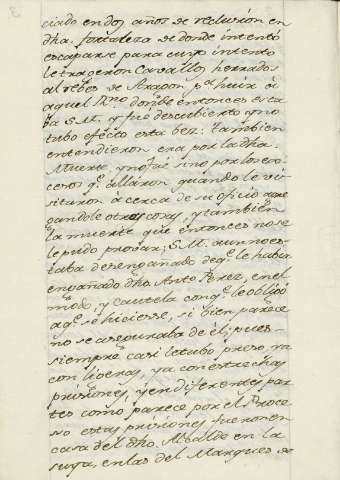 ciado en dos años de reclusión en
dha. fortaleza de donde intentó
escaparse para cuyo intento
le trageron Cavallos herrados
al rebes de Aragon pa. huir á
aquel Rno. donde entonces esta
ba S.M. y fue descubierto y no
tubo efecto esta bez. Tambien
entendieron era por la dha.
Muerte, y no fué sino por los ex
cesos q. allaron quando le vi
sitaron á cerca de su oficio
gandole otras cosas, y tambien
la muerte que entonces no se
le pudo provar; S.M. aun no es
taba desengañado de q. le habia
engañado dho. Anto. Perez, en el
modo, y cautela con q. le obligó
a q. se hiciesse, si bien parece
no se aseguraba de él; pues
siempre casi le tubo preso, ya
con ligeras, ya con estrechas
prisiones, y en diferentes par
tes como parece por el Proce
so estas prisiones fueron en
casa del dho. Alcalde en la
suya, en las del Marques de